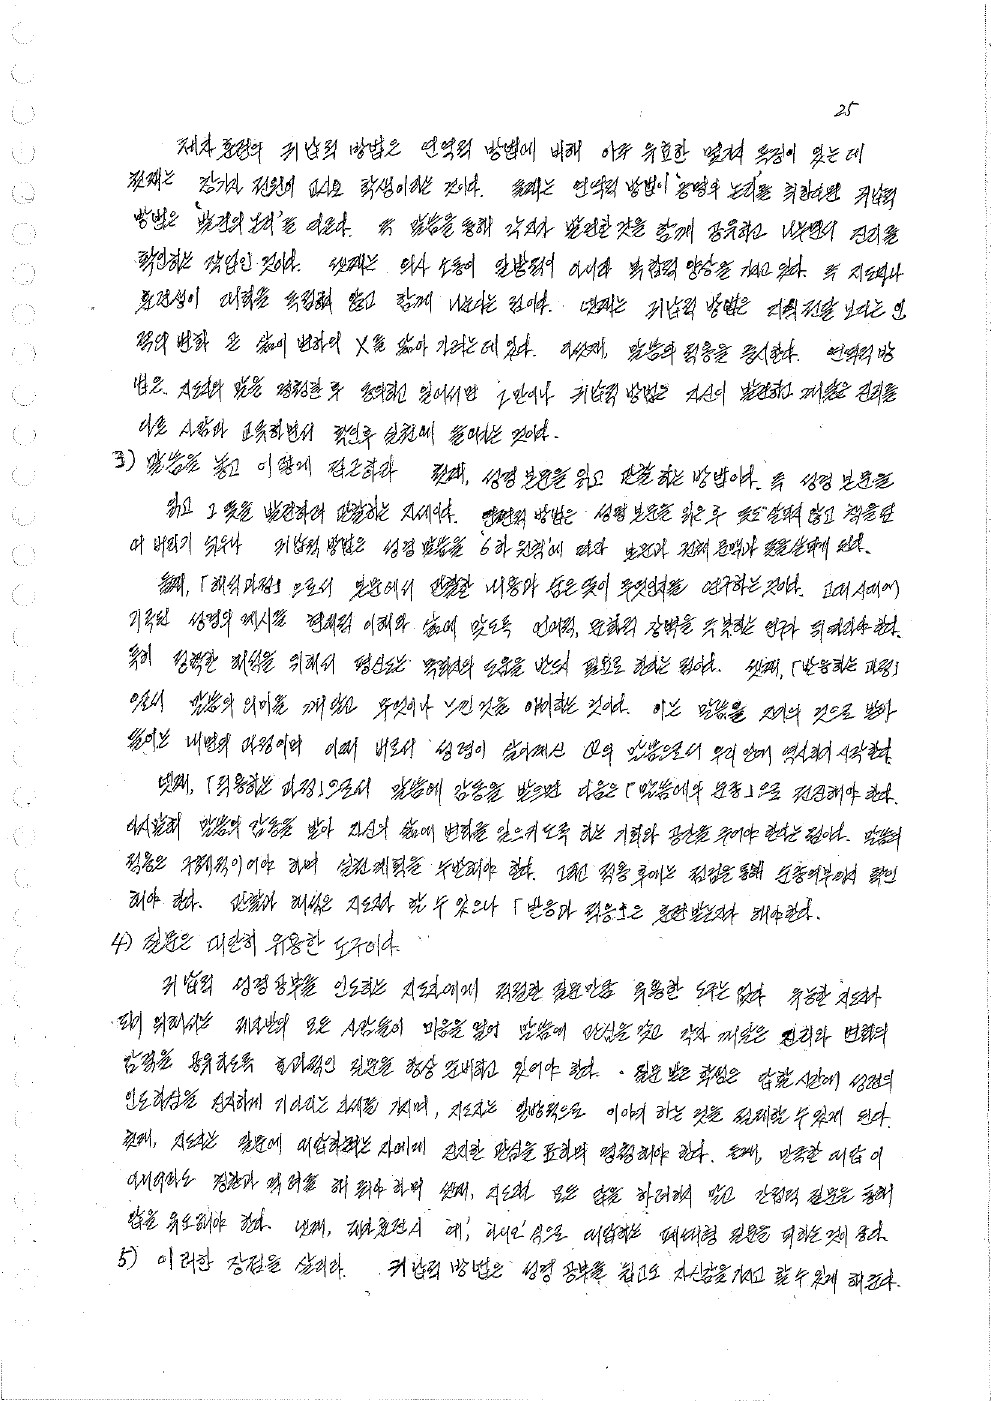 25
제자훈련의 귀납적 방법은 연역적 방법에 비해 아주 유효한 몇가지 특징이 있는데
첫째는 참가자 전원이 교사요 학생이라는 것이다. 둘째는 연역적 방법이 '증명의 논리'를 취한다면 귀납적
방법은 '발견의 논리'를 따른다. 즉 말씀을 통해 각자가 발견한 것을 함께 공유하고 나누면서 진리를
확인하는 작업인 것이다. 셋째는 의사 소통이 일방적이 아니라 복합적 양상을 가지고 있다. 즉 지도자나
훈련생이 대화를 독점하지 않고 함께 나눈다는 점이다. 넷째는 귀납적 방법은 지식전달 보다는 인
격의 변화 곧 삶의 변화의 X를 닮아 가려는데 있다. 다섯째, 말씀의 적용을 중시한다. 연역적 방
법은 지도자의 말을 경청한 후 동의하고 일어서면 그만이나 귀납적 방법은 자신이 발견하고 깨달은 진리를
다른 사람과 교육하면서 확인후 실천에 들어가는 것이다.
3) 말씀을 놓고 이렇게 접근하라 첫째, 성경 본문을 읽고 관찰하는 방법이다. 즉 성경 본문을
읽고 그 뜻을 발견하려 관찰하는 자세이다. 방법은 성경 본문을 읽은 후 뜻도 살피지 않고 책을 덮
어 버리기 쉬우나 귀납적 방법은 성경 말씀을 '6하 원칙'에 따라 본문과 전체 문맥과 뜻을 살피게 된다.
둘째, 「해석과정」으로서 본문에서 관찰한 내용과 숨은 뜻이 무엇인지를 연구하는 것이다. 고대 시대에
기록된 성경의 메시지를 현재적 이해와 삶에 맞도록 언어적, 문화적 장벽을 극복하는 연구가 되어져야 한다.
특히 정확한 해석을 위해서 평신도는 목회자의 도움을 반드시 필요로 한다는 점이다. 셋째, 「반응하는 과정」
으로서 말씀의 의미를 깨닫고 무엇이나 느낀 것을 이야기하는 것이다. 이는 말씀을 자기의 것으로 받아
들이는 내면의 과정이며 이때 비로서 성령이 살아계신 말씀으로서 우리 안에 역사하기 시작한다.
넷째, 「적용하는 과정」으로서 말씀에 감동을 받으면 다음은 「말씀에의 순종」으로 전진해야 한다.
다시말해 말씀의 감동을 받아 자신의 삶에 변화를 일으키도록 하는 기회와 공간을 주어야 한다는 점이다. 말씀의
적용은 구체적이어야 하며 실천계획을 수반해야 한다. 그리고 적용 후에는 점검을 통해 순종여부까지 확인
해야 한다. 관찰과 해석은 지도자가 할 수 있으나 「반응과 적용」으은 훈련받는자가 해야한다.
4) 질문은 대단히 유용한 도구이다.
귀납적 성경공부를 인도하는 지도자에게 적절한 질문만큼 유용한 도구는 없다 유능한 지도자가
되기 위해서는 제자반의 모든 사람들이 마음을 열어 말씀에 관심을 갖고 각자 깨달은 진리와 변화의
감격을 공유하도록 효과적인 질문을 항상 준비하고 있어야 한다. 질문 받은 학생은 답할 시간에 성령의
인도하심을 진지하게 기다리는 자세를 가지며, 지도자는 일방적으로 이야기 하는 것을 절제할 수 있게 된다.
첫째, 지도자는 질문에 대답하려는 자에게 진지한 관심을 표하며 경청해야 한다. 둘째, 만족할 대답이
아니더라도 칭찬과 격려를 해 주어야 하며 셋째, 지도자는 모든 답을 하려하지 말고 간접적 질문을 통해
답을 유도해야 한다. 넷째, 제자훈련시 '예', '아니오' 식으로 대답하는 폐쇄형 질문을 피하는 것이 좋다.
5) 이러한 장점을 살리라. 귀납적 방법은 성경 공부를 쉽고도 자신감을 가지고 할 수 있게 해준다.